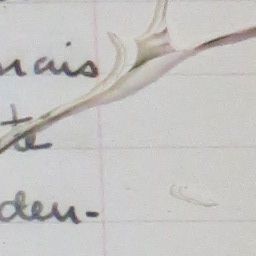 mais
te
den-